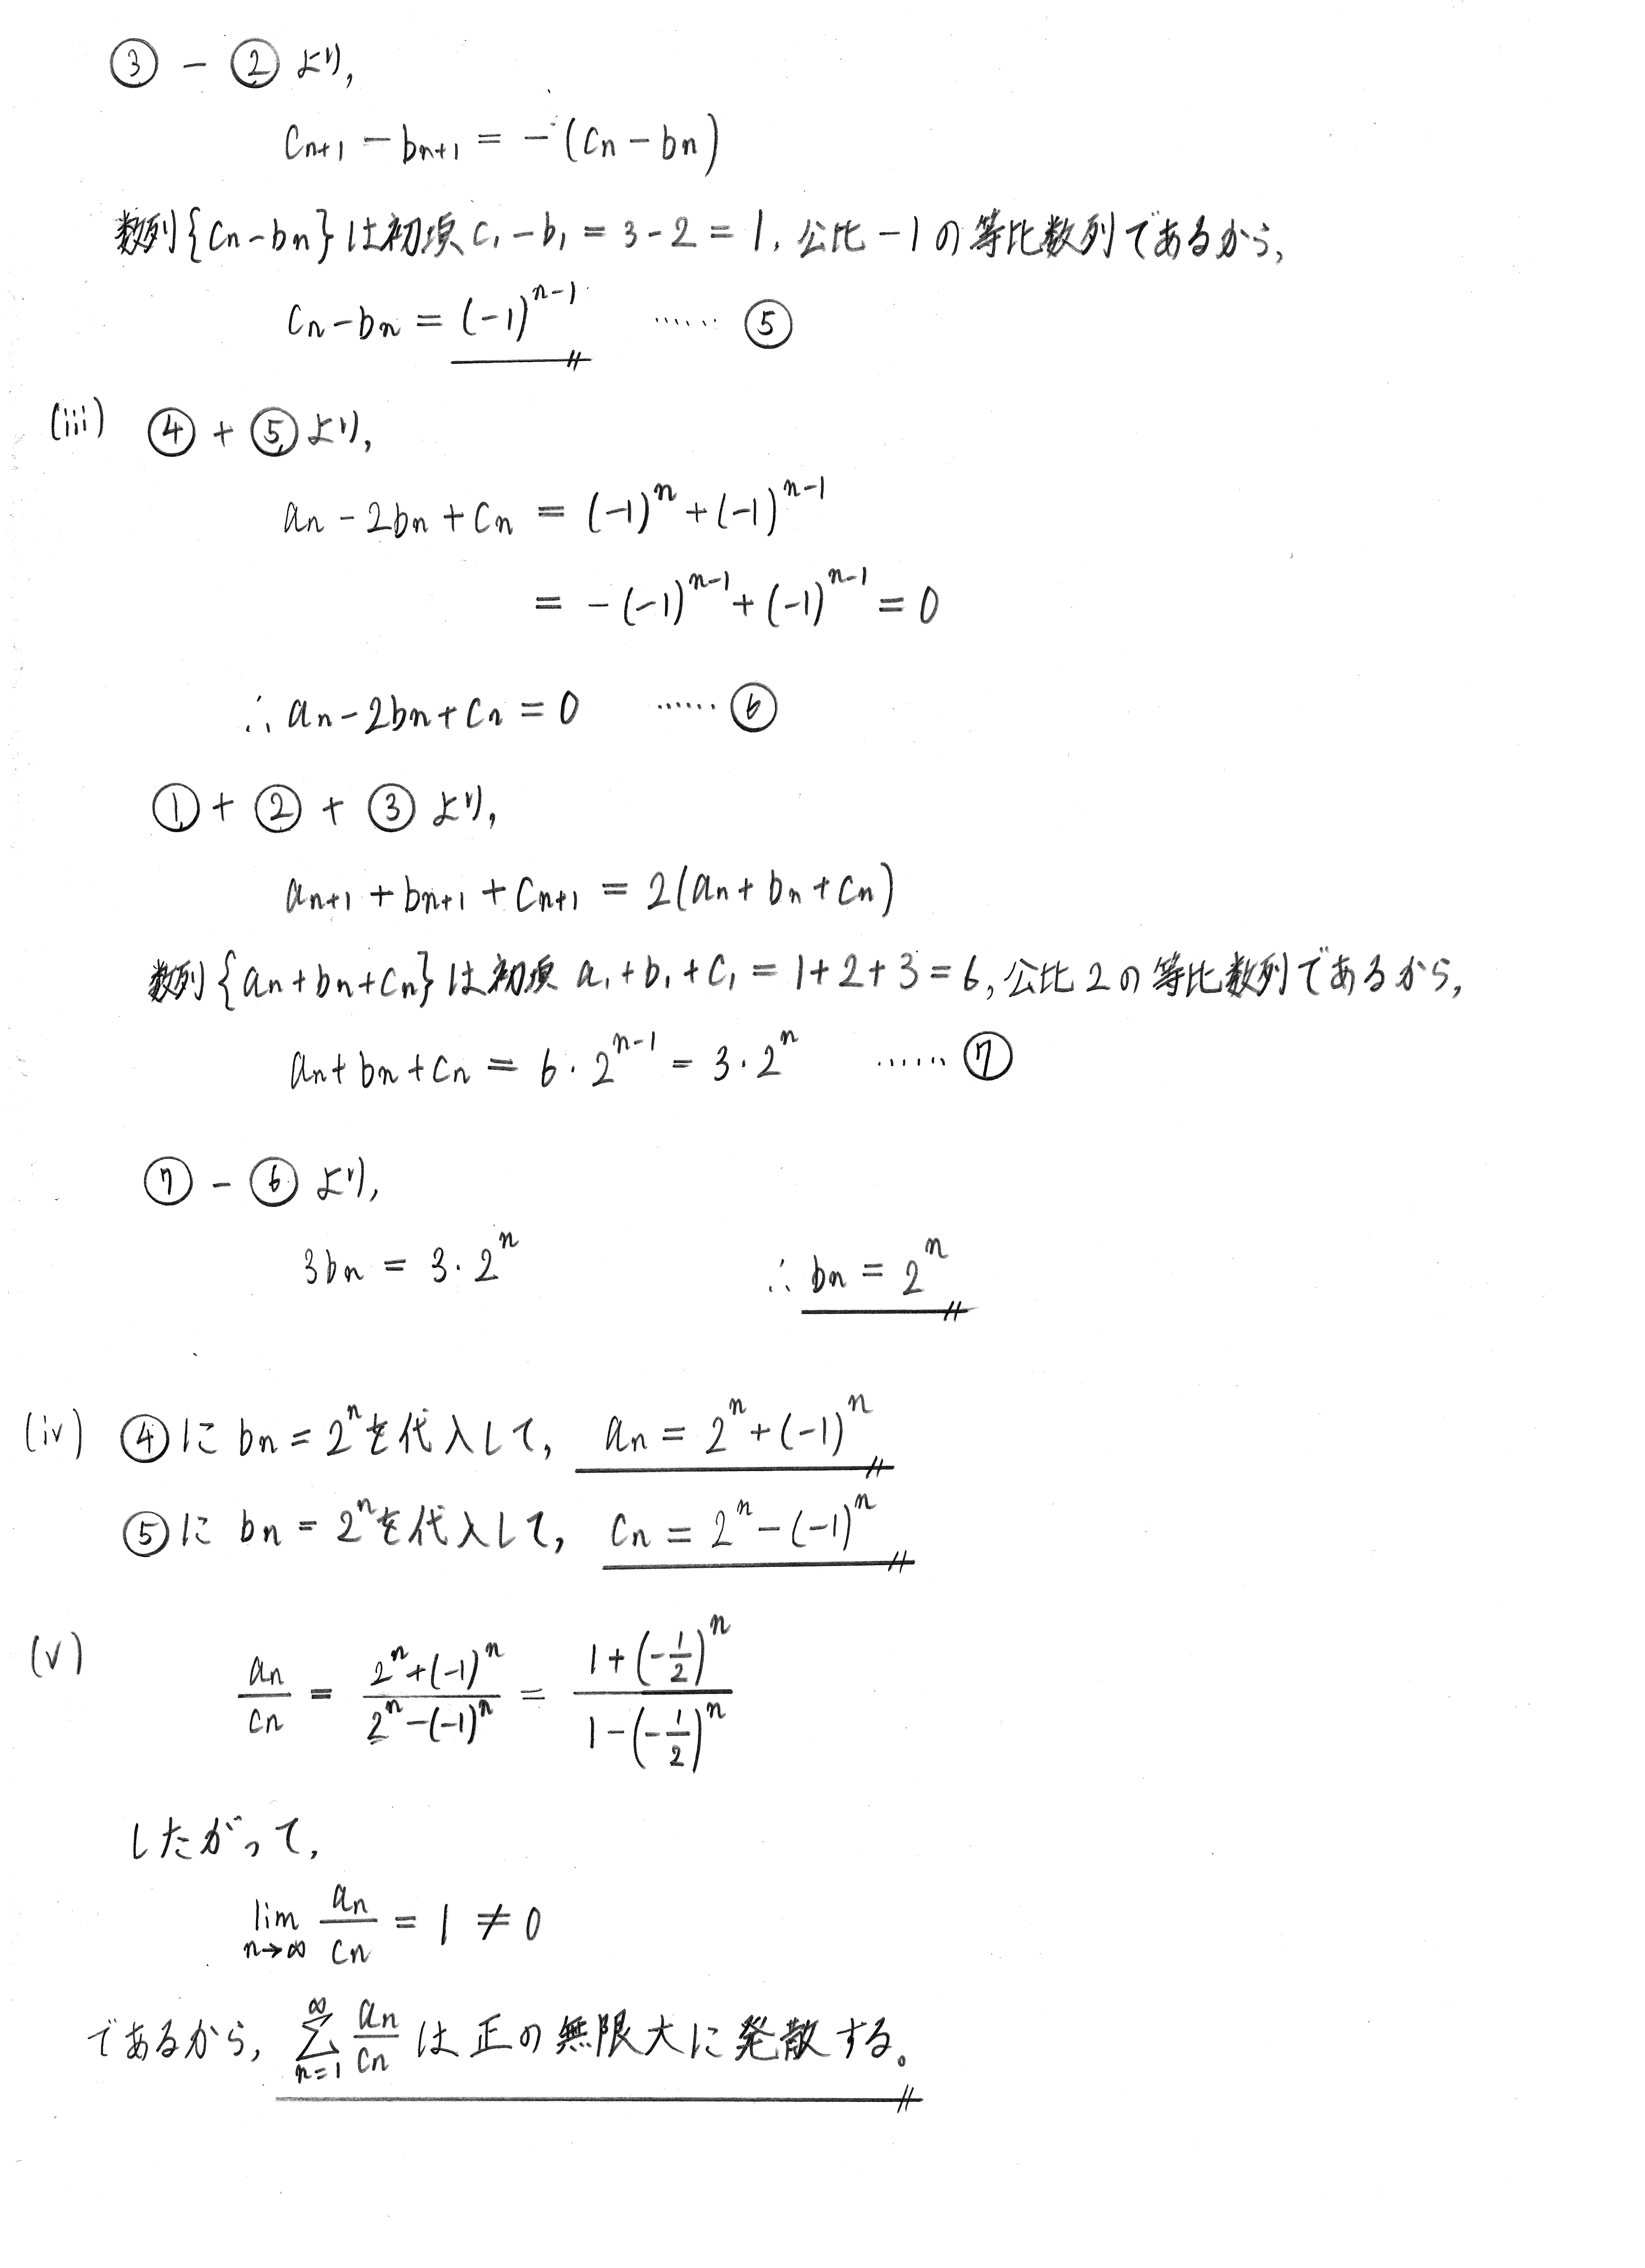 ③ − ② より,
c_{n+1} − b_{n+1} = −(c_n − b_n)
数列{c_n − b_n}は初項 c_1 − b_1 = 3 − 2 = 1, 公比 −1 の等比数列であるから,
c_n − b_n = (−1)^{n−1} …… ⑤
(iii) ④ + ⑤ より,
a_n − 2b_n + c_n = (−1)^n + (−1)^{n−1}
= −(−1)^{n−1} + (−1)^{n−1} = 0
∴ a_n − 2b_n + c_n = 0 …… ⑥
① + ② + ③ より,
a_{n+1} + b_{n+1} + c_{n+1} = 2(a_n + b_n + c_n)
数列{a_n + b_n + c_n}は初項 a_1 + b_1 + c_1 = 1 + 2 + 3 = 6, 公比 2 の等比数列であるから,
a_n + b_n + c_n = 6・2^{n−1} = 3・2^n …… ⑦
⑦ − ⑥ より,
3b_n = 3・2^n ∴ b_n = 2^n
(iv) ④に b_n = 2^n を代入して, a_n = 2^n + (−1)^n
⑤に b_n = 2^n を代入して, c_n = 2^n − (−1)^n
(v) \frac{a_n}{c_n} = \frac{2^n + (−1)^n}{2^n − (−1)^n} = \frac{1 + (−\frac{1}{2})^n}{1 − (−\frac{1}{2})^n}
したがって,
\lim_{n→∞} \frac{a_n}{c_n} = 1 ≠ 0
であるから, \sum_{n=1}^{∞} \frac{a_n}{c_n} は正の無限大に発散する。